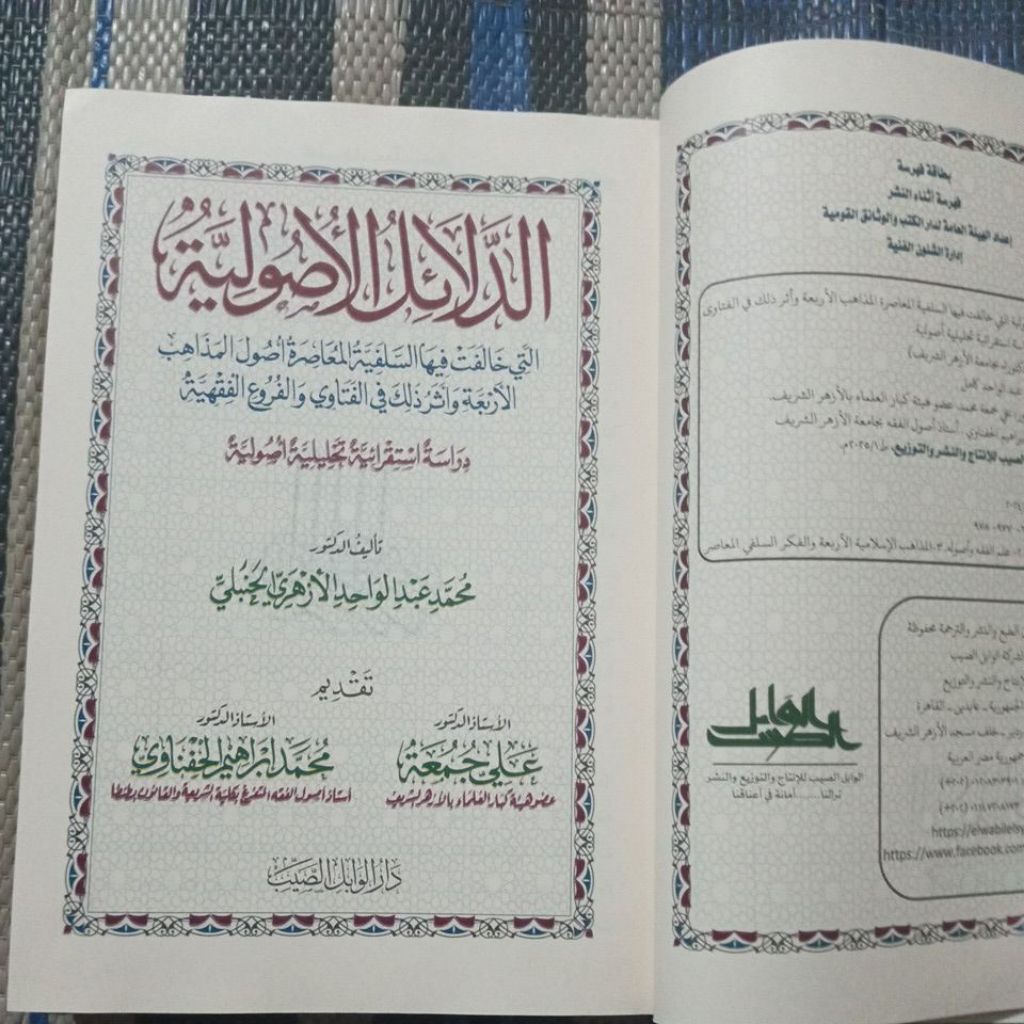 الدَّلَائِلُ الأُصُولِيَّةُ
التي خَالَفَتْ فِيهَا السَّلَفِيَّةُ المُعَاصِرَةُ أُصُولَ المَذَاهِبِ
الأَرْبَعَةِ وَأَثَرُ ذَلِكَ فِي الفَتَاوِي وَالفُرُوعِ الفِقْهِيَّةِ
دِرَاسَةٌ اسْتِقْرَائِيَّةٌ تَحْلِيلِيَّةٌ أُصُولِيَّةٌ
تأليفُ الدكتور
مُحَمَّد عَبْد الوَاحِد الأَزْهَرِيّ الحَنْبَلِيّ
تَقْدِيم
الأستاذ الدكتور
عَلِي جُمُعَة
عضو هيئة كبار العلماء بالأزهر الشريف
الأستاذ الدكتور
مُحَمَّد إبْرَاهِيم الحَفْنَاوِي
أستاذ أصول الفقه المتفرغ بكلية الشريعة والقانون بطنطا
دَارُ الوَابِلِ الصَّيِّبِ
بطاقة فهرسة
فهرسة أثناء النشر
إعداد الهيئة العامة لدار الكتب والوثائق القومية
إدارة الشئون الفنية
التي خالفت فيها السلفية المعاصرة المذاهب الأربعة وأثر ذلك في الفتاوى
استقرائية تحليلية أصولية
جامعة الأزهر الشريف)
عبد الواحد كامل
علي جمعة محمد، عضو هيئة كبار العلماء بالأزهر الشريف.
الحفناوي. أستاذ أصول الفقه بجامعة الأزهر الشريف
الصيب للإنتاج والنشر والتوزيع، ط١/٢٠٢٥م.
علم الفقه وأصوله. ٣-المذاهب الإسلامية الأربعة والفكر السلفي المعاصر
الطبع والنشر والترجمة محفوظة
لشركة الوابل الصيب
للإنتاج والنشر والتوزيع
الجمهورية - عابدين - القاهرة
خلف مسجد الأزهر الشريف
جمهورية مصر العربية
https://elwabilelsy
https://www.facebook.com
الوابل الصيب
الوابل الصيب للإنتاج والتوزيع والنشر
تراثنا.......أمانة في أعناقنا